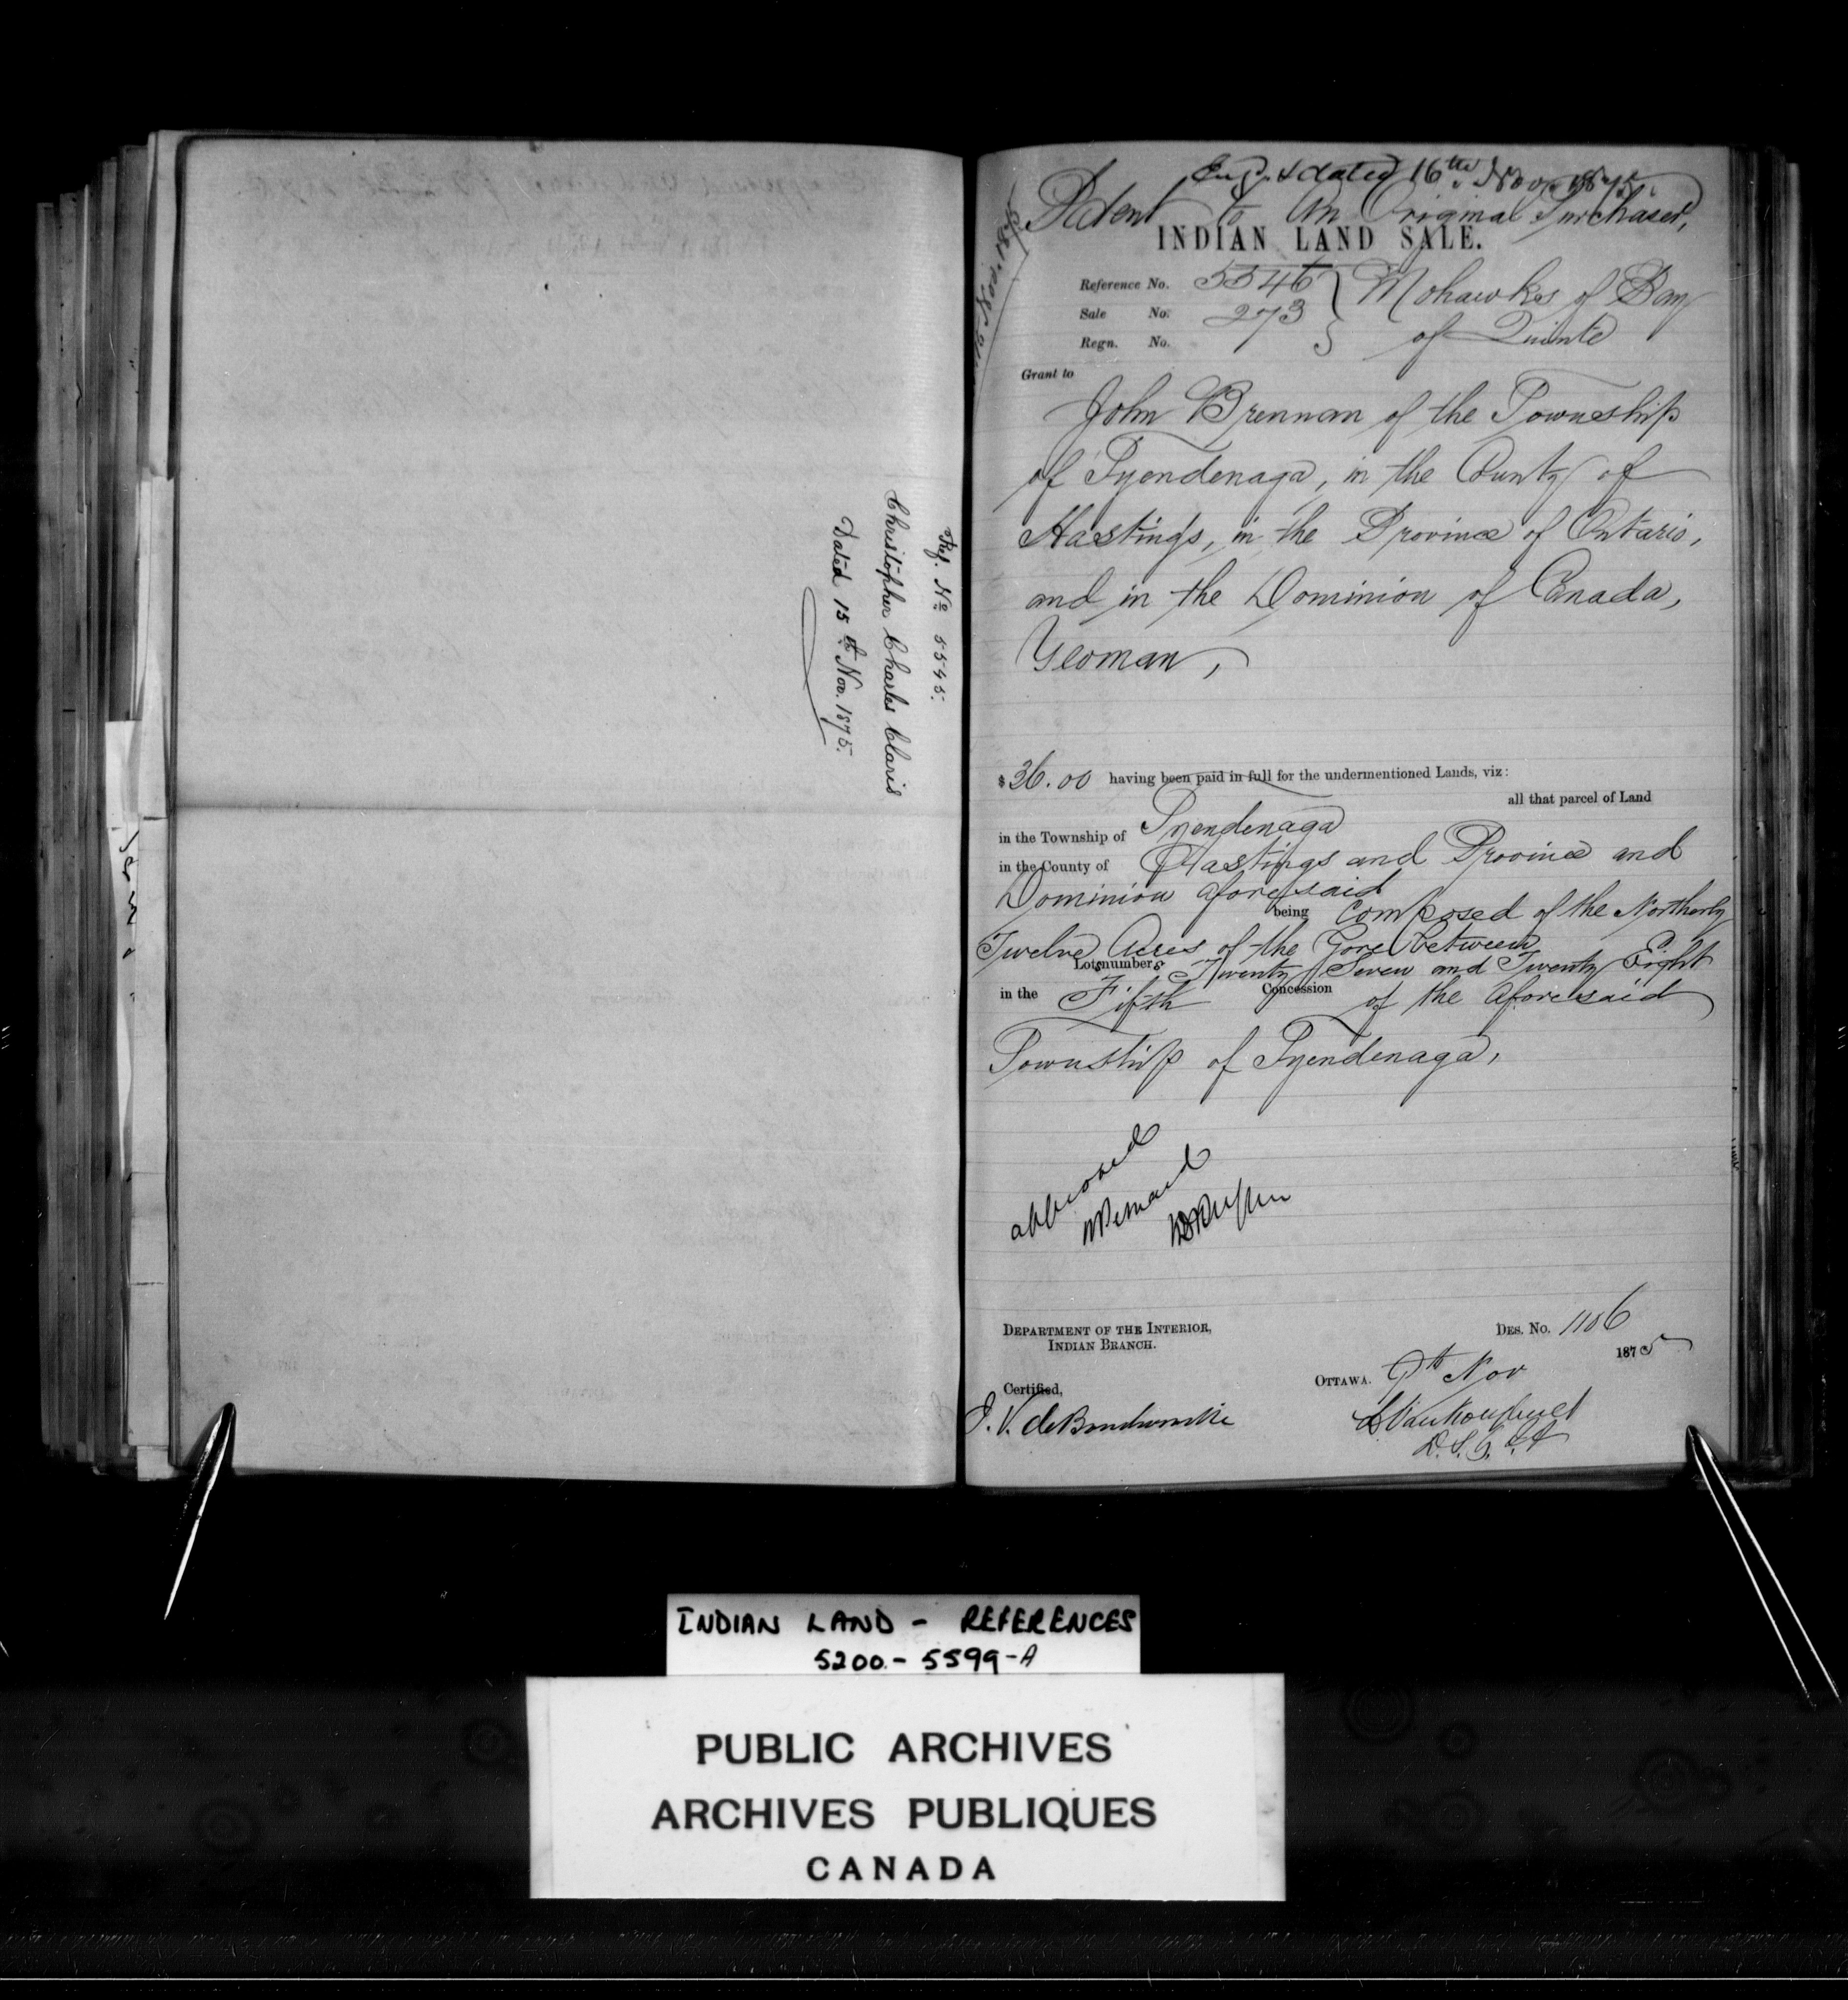 Ref. No 5545.
Christopher Charles Claris
Dated 15th Nov. 1875.
Engd. & dated 16th Nov. 1875.
Patent to An Original Purchaser,
INDIAN LAND SALE.
Reference No. 5546 } Mohawks of Bay
Sale No. 273
Regn. No. of Quinte
15 Nov. 1875
Grant to
John Brennan of the Township
of Tyendenaga, in the County of
Hastings, in the Province of Ontario,
and in the Dominion of Canada,
Yeoman,
$36.00 having been paid in full for the undermentioned Lands, viz:
all that parcel of Land
in the Township of Tyendenaga
in the County of Hastings and Province and
Dominion aforesaid
being Composed of the Northerly
Twelve Acres of the Gore between
Lots numbers Twenty Seven and Twenty Eight
in the Fifth Concession of the aforesaid
Township of Tyendenaga,
approved
DEPARTMENT OF THE INTERIOR, DES. No. 1106
INDIAN BRANCH.
OTTAWA. 9th Nov 1875
Certified,
L Vankoughnet
D.S.G. I.A
INDIAN LAND - REFERENCES
5200 - 5599-A
PUBLIC ARCHIVES
ARCHIVES PUBLIQUES
CANADA